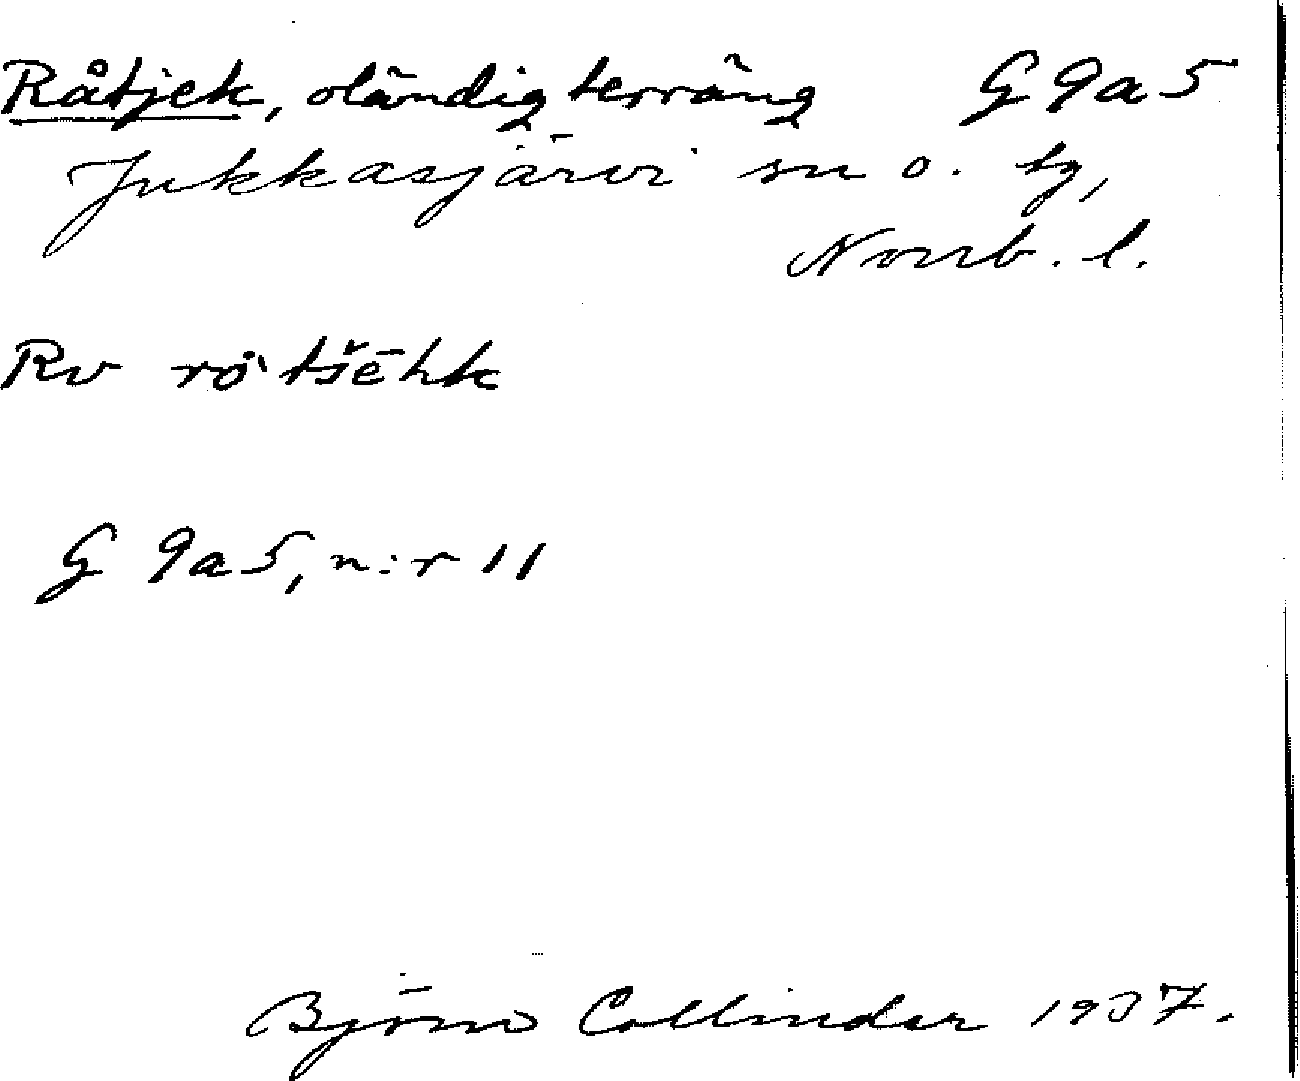 Råtjek, oländig terräng G 9 a 5
Jukkasjärvi sn o. tg,
Norrb. l.
Rv rå̀tšēhk
G 9a5, n:r 11
Björn Collinder 1937.